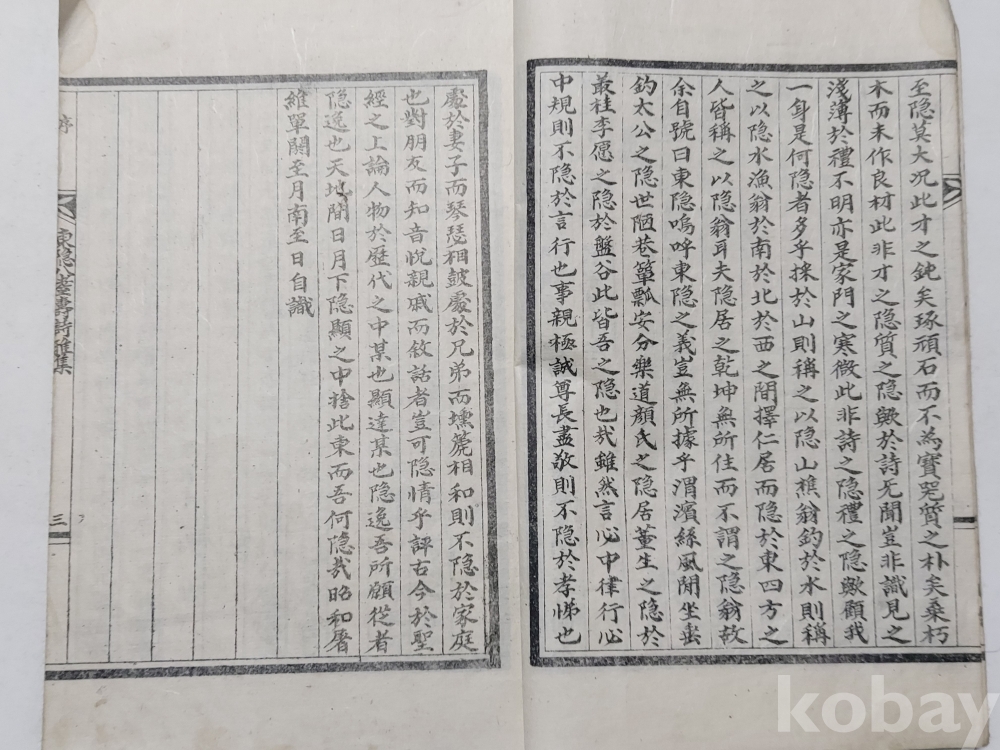 至隐莫大况此才之鈍矣琢頑石而不為寶㒵質之朴矣桑朽
木而未作良材此非才之隐質之隐歟於詩无聞豈非識見之
淺薄於禮不明亦是家門之寒微此非詩之隐禮之隐歟顧我
一身是何隐者多乎採於山則稱之以隐山樵翁釣於水則稱
之以隐水漁翁於南於北於西之間擇仁居而隐於東四方之
人皆稱之以隐翁耳夫隐居之乾坤無所往而不謂之隐翁故
余自號曰東隐嗚呼東隐之義豈無所據乎渭濱絲風閒坐垂
釣太公之隐世陋巷簞瓢安分樂道顔氏之隐居董生之隐於
叢桂李愿之隐於盤谷此皆吾之隐也㢤雖然言必中律行必
中規則不隐於言行也事親極誠尊長盡敬則不隐於孝悌也
處於妻子而琴瑟相皷處於兄弟而壎篪相和則不隐於家庭
也對朋友而知音悅親戚而敘話者豈可隐情乎評古今於聖
經之上論人物於歷代之中某也顯達某也隐逸吾所願從者
隐逸也天地間日月下隐顯之中捨此東而吾何隐㢤昭和屠
維單閼至月南至日自識
序
東隐八耋壽詩雅集
三
kobay